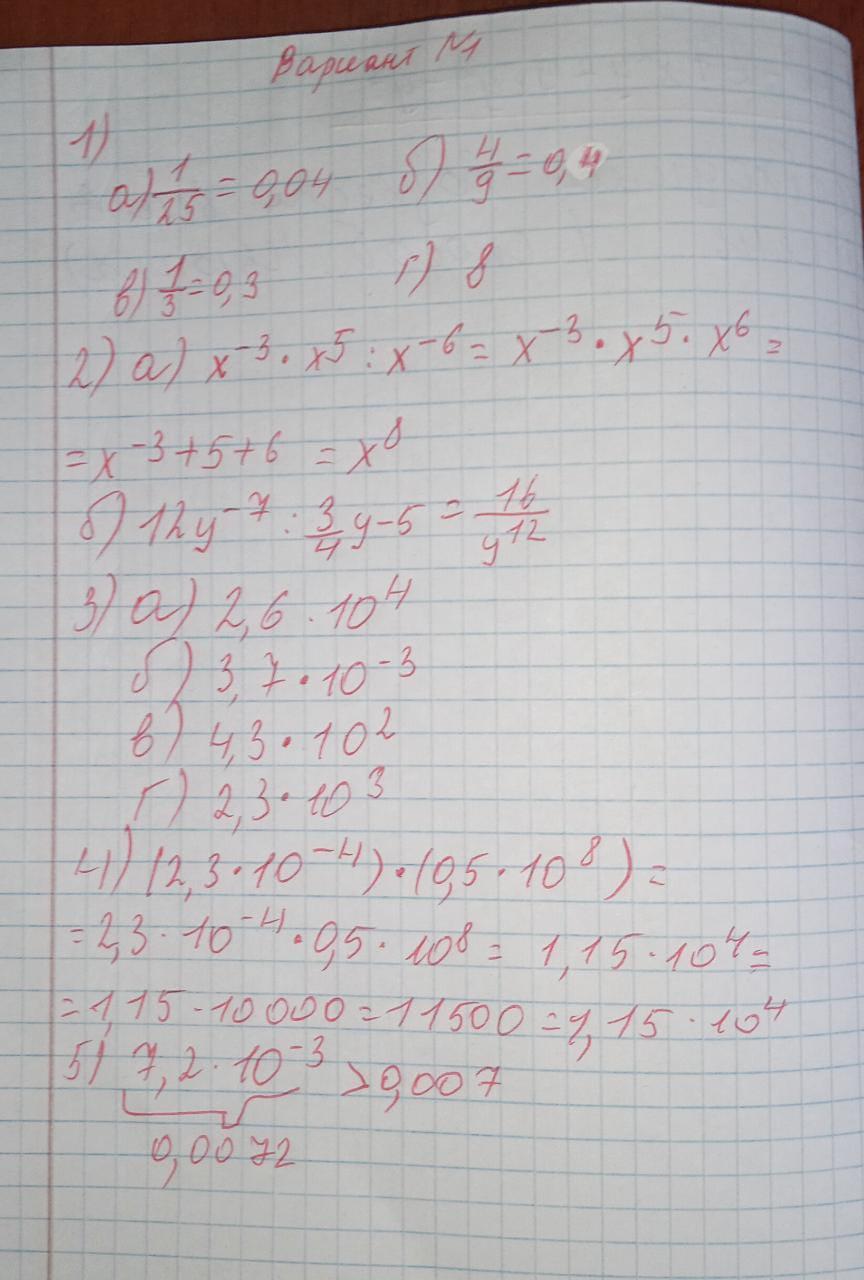 Вариант №1
1)
а) 1/25 = 0,04 б) 4/9 = 0,4
в) 1/3 = 0,3 г) 8
2) а) x⁻³ · x⁵ : x⁻⁶ = x⁻³ · x⁵ · x⁶ =
= x⁻³⁺⁵⁺⁶ = x⁸
б) 12y⁻⁷ : 3/4 y-5 = 16/y¹²
3) а) 2,6 · 10⁴
б) 3,7 · 10⁻³
в) 4,3 · 10²
г) 2,3 · 10³
4) (2,3 · 10⁻⁴) · (0,5 · 10⁸) =
= 2,3 · 10⁻⁴ · 0,5 · 10⁸ = 1,15 · 10⁴ =
= 1,15 · 10000 = 11500 = 1,15 · 10⁴
5) 7,2 · 10⁻³ > 0,007
0,0072